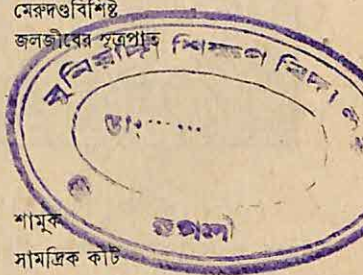 মেরুদণ্ডবিশিষ্ট
জলজীবের সূত্রপাত
বুনিয়াদী শিক্ষণ
তাং......
শামুক
সামদ্রিক কীট